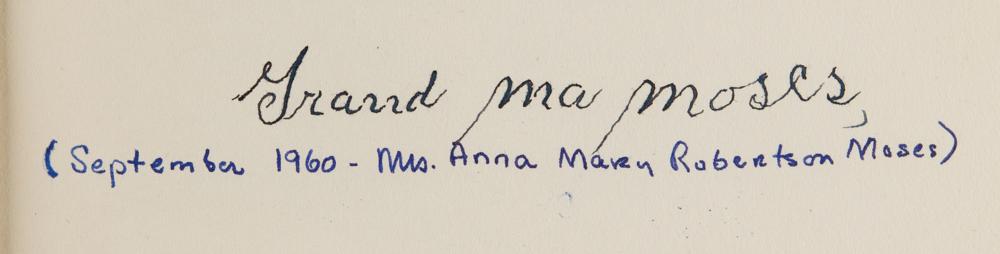 Grand ma moses,
(September 1960 - Mrs. Anna Mary Robertson Moses)